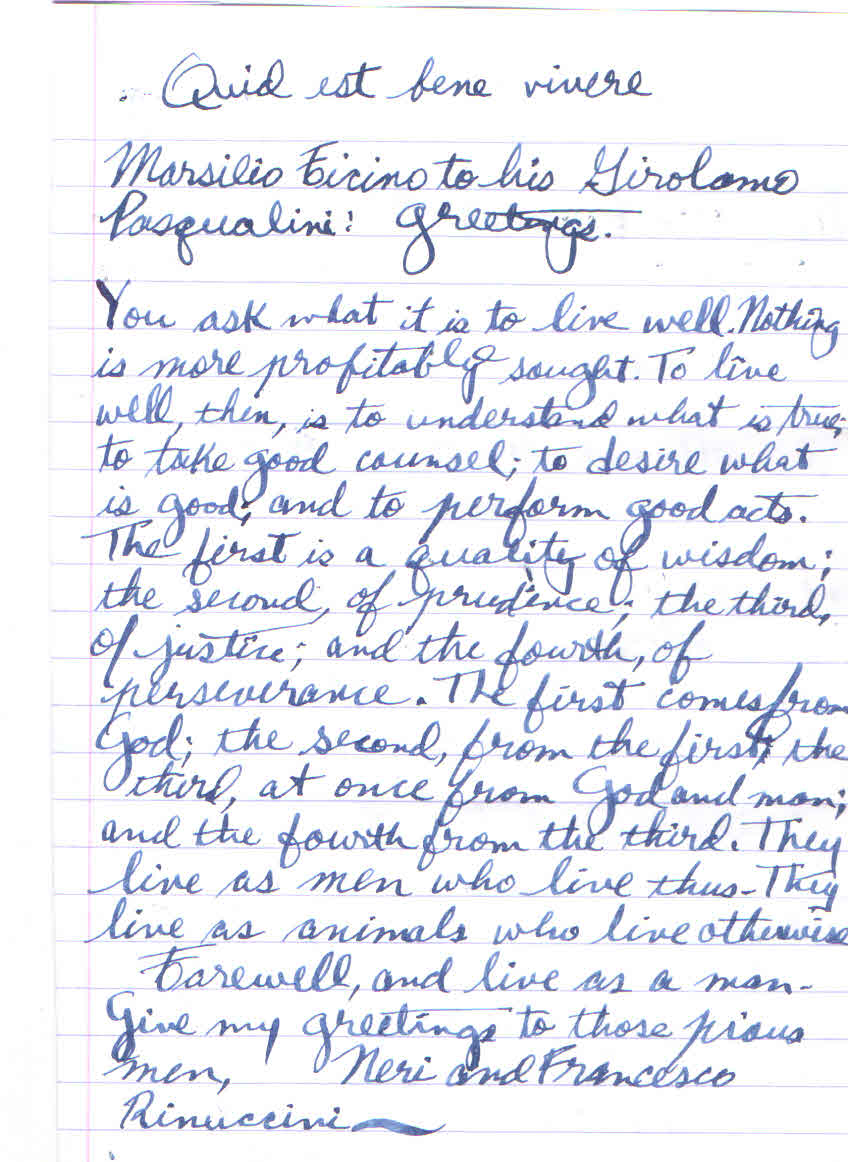 Quid est bene vivere
Marsilio Ficino to his Girolamo
Pasqualini: greetings.
You ask what it is to live well. Nothing
is more profitably sought. To live
well, then, is to understand what is true;
to take good counsel; to desire what
is good; and to perform good acts.
The first is a quality of wisdom;
the second, of prudence; the third,
of justice; and the fourth, of
perseverance. The first comes from
God; the second, from the first; the
third, at once from God and man;
and the fourth from the third. They
live as men who live thus. They
live as animals who live otherwise
Farewell, and live as a man.
Give my greetings to those pious
men, Neri and Francesco
Rinuccini